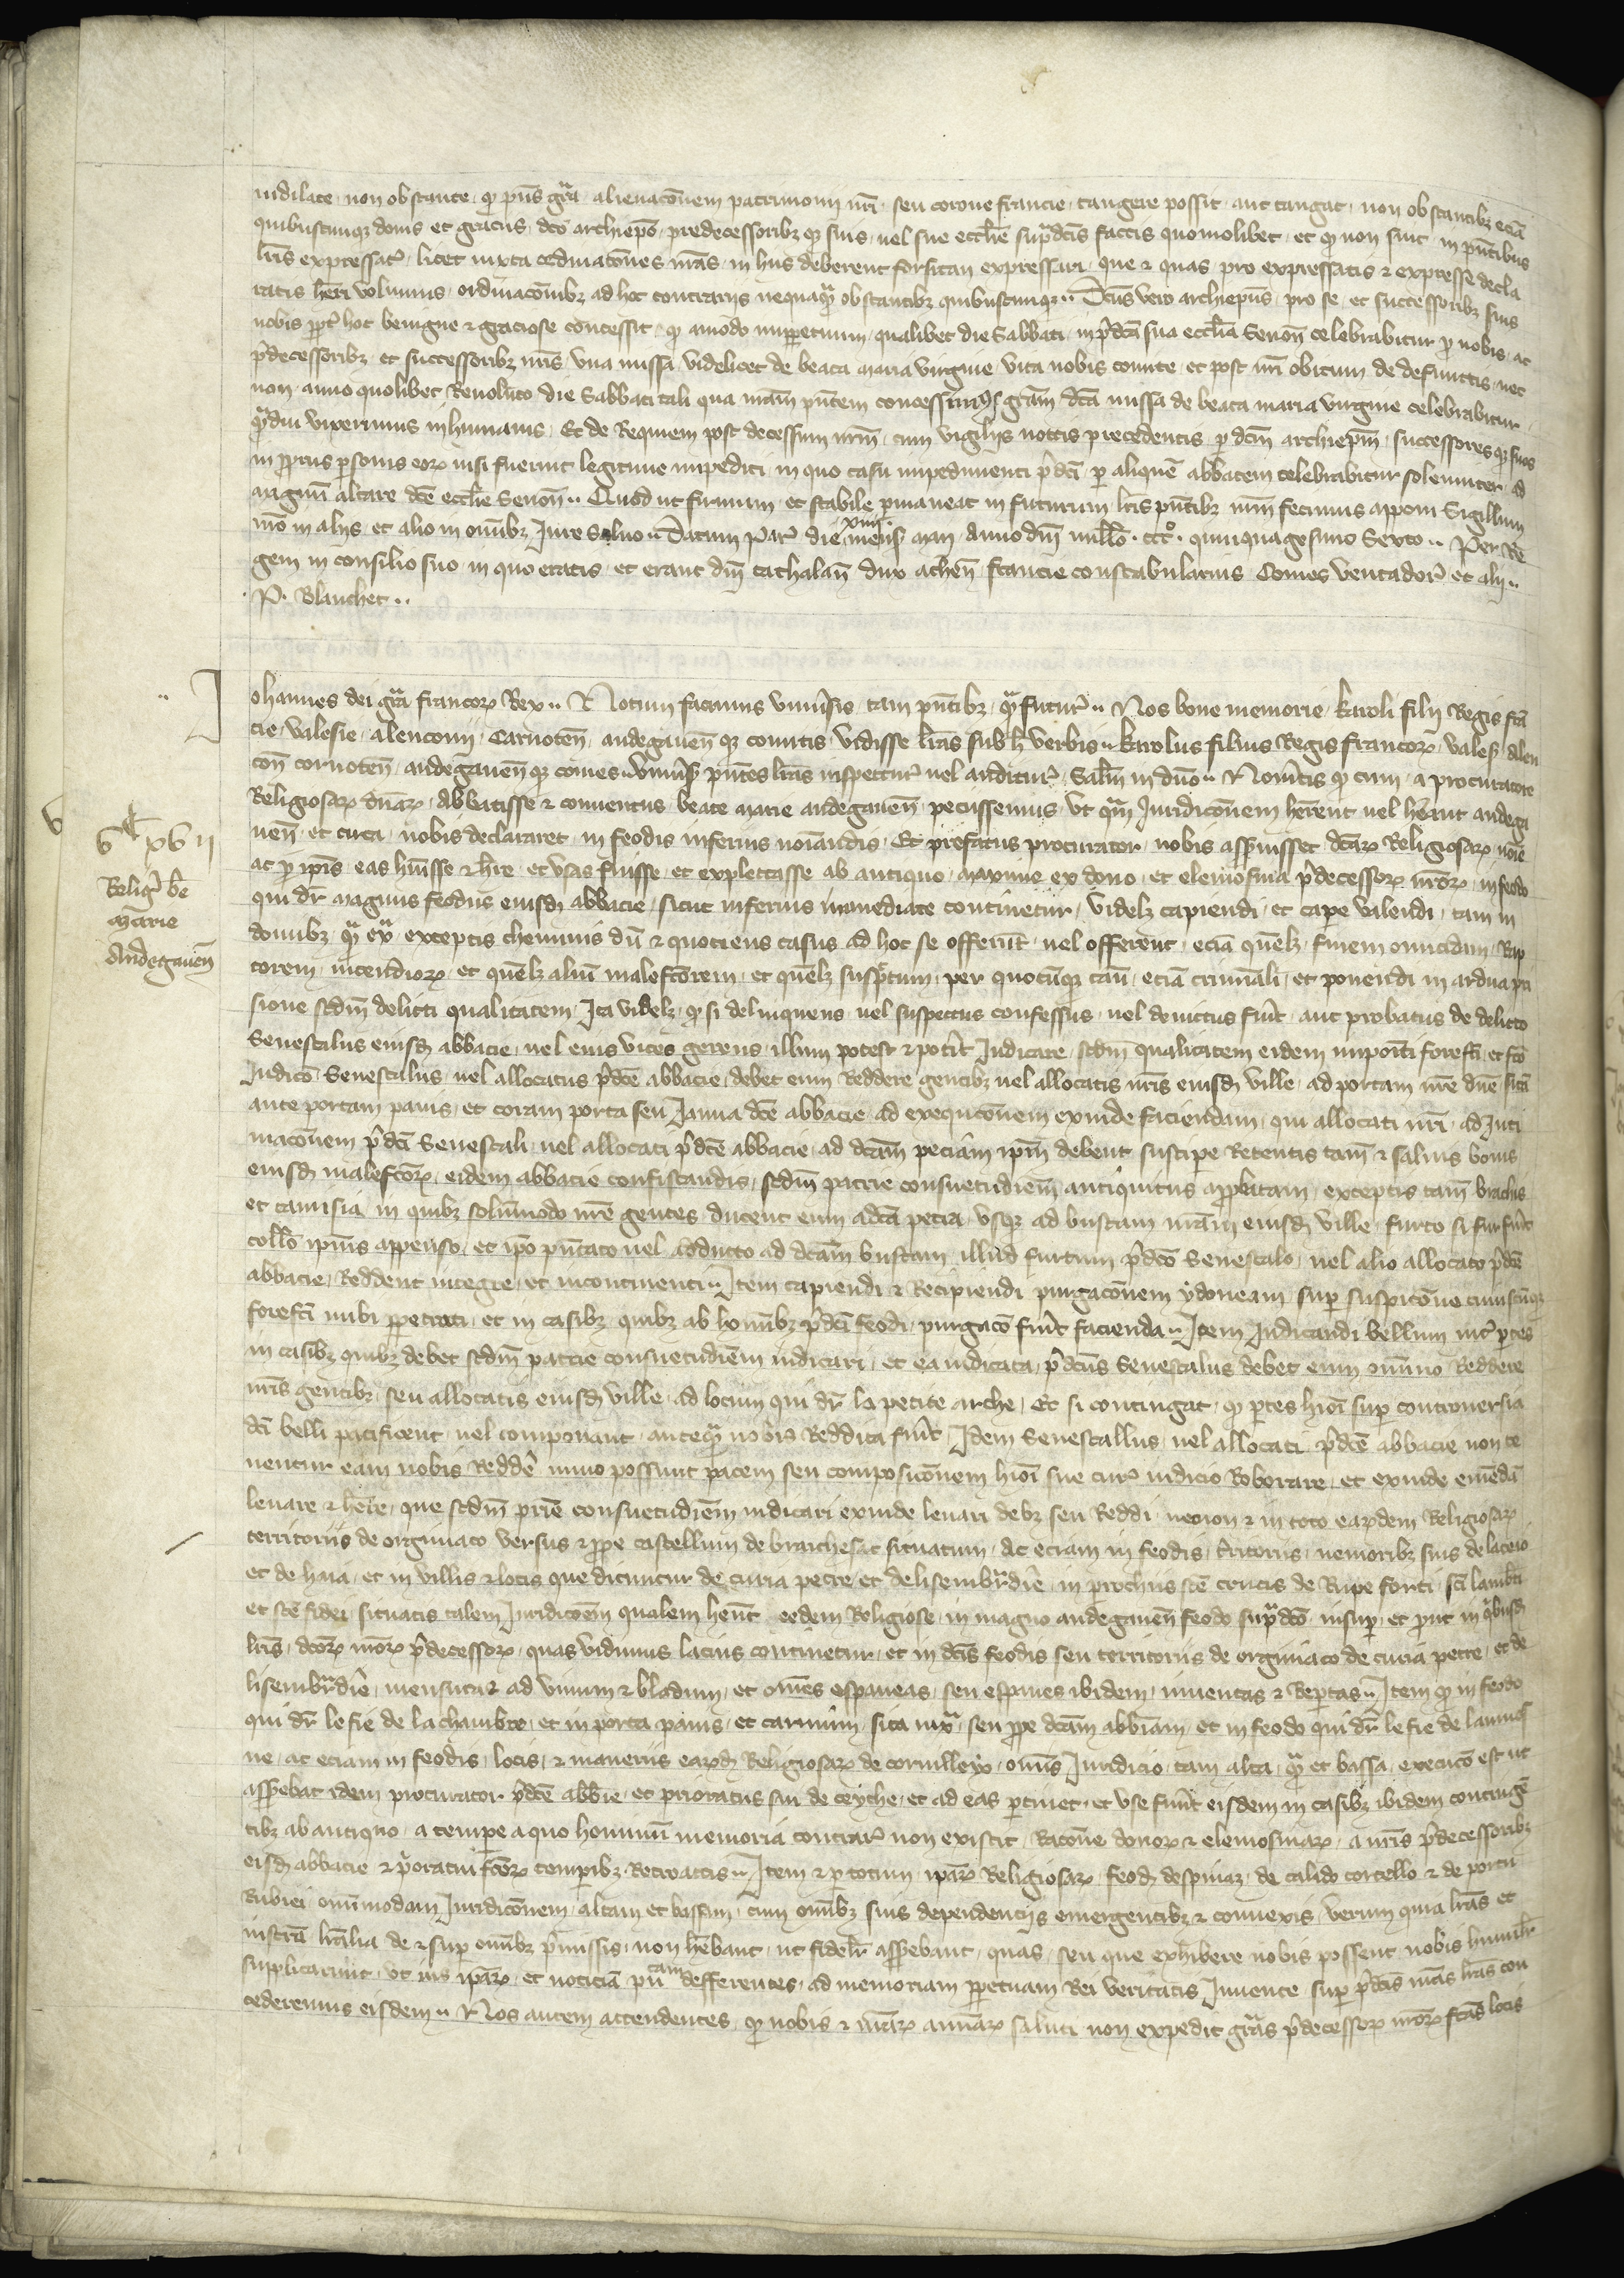 indilate non obstante qꝫ pñs grã alienacõem patrimonii nr̃i seu corone francie tangere possit aut tangat non obstantibꝫ eciã
quibuscunqꝫ donis et graciis dc̃o archiep̃o predecessoribꝫ qꝫ suis uel sue eccl̃ie sup̃dc̃is factis quomolibet et qꝫ non sint in pñtibus
lr̃is expressat̃ licet iuxta ordinacõnes nr̃as in hiis deberent forsitan expressari que ⁊ quas pro expressatis ⁊ expresse decla
ratis her̃i volumus ordinacõnibꝫ ad hoc contrariis nequaq̃ obstantibꝫ quibuscunqꝫ Dc̃us vero archiep̃us pro se et successoribꝫ suis
nobis ꝓpt̃ hoc benigne ⁊ graciose concessit qꝫ amodo inperpetuum qualibet die Sabbati in p̃dc̃a sua eccl̃ia Senoñ celebrabitur ꝓ nobis ac
p̃decessoribꝫ et successoribꝫ nr̃is una missa videlicet de beata maria virgine vita nobis comite et post nr̃i obitum de defunctis nec
non anno quolibet Reuoluto die Sabbati tali qua nr̃am pñtem concessimus grãm dc̃a missa de beata maria virgine celebrabitur
q̃diu vixerimus in humanis Et de Requiem post decessum nr̃m cum vigiliis noctis precedentis ꝑ dc̃m archiep̃m successores qꝫ suos
in ꝓpriis ꝑsonis eoꝝ nisi fuerint legitime impediti in quo casu impedimenti p̃dc̃i ꝑ aliquẽ abbatem celebrabitur solenniter ad
magnũ altare dc̃e eccl̃ie Senoñ Quod ut firmum et stabile ꝑmaneat in futurum lr̃is pñtibꝫ nr̃m fecimus apponi Sigillum
nr̃o in aliis et alio in om̃ibꝫ Jure Saluo Datum Par̃ die xiiiiᵃ mens̃ maii anno dñi mill̃o cccº quinquagesimo Sexto Per Re
gem in consilio suo in quo eratis et erant dñi cathalañ dux atheñ francie constabularius Comes ventador̃ et alii
P. Blanchet
Johannes dei grã francoꝝ Rex Notum facimus vniũsis tam pñtibꝫ q̃ futur̃ Nos bone memorie karoli filii Regis frã
cie valesie alenconii Carnoteñ andegaueñ qꝫ comitis vidisse lr̃as sub h̃ verbis karolus filius Regis francoꝝ vales̃ Alen
coñ cornoteñ andegaueñ qꝫ comes vniũs̃ pñtes lr̃as inspectur̃ uel auditur̃ Sal̃m in dño Noũitis qꝫ cum a procuratore
Religiosaꝝ dñaꝝ Abbatisse ⁊ conuentus beate marie andegaueñ peciissemus vt q̃m Juridicõnem her̃ent uel her̃unt andega
ueñ et circa nobis declararet in feodis inferius noĩandis Et prefatus procurator nobis asseruisset dc̃aꝝ Religiosaꝝ noĩe
ac ꝑ ip̃as eas hũisse ⁊ her̃e et usas fuisse et explectasse ab antiquo maxime ex dono et elemosina p̃decessoꝝ nr̃oꝝ in feodo
qui dr̃ magnus feodus eiusdꝫ abbacie sicut inferius immediate continetur videlꝫ capiendi et cape valendi tam in
domibꝫ q̃ ext̃ exceptis cheminis dũ ⁊ quociens casus ad hoc se offerũt uel offerent eciã quẽlꝫ furem omicidam Rap
torem incendioꝝ et quẽlꝫ aliũ malefc̃orem et quẽlꝫ susp̃ctum per quocũqꝫ cãu eciã criminali et ponendi in ardua pri
sione scd̃m delicti qualitatem Ita videlꝫ qꝫ si delinquens uel suspectus confessus uel deuictus fũit aut probatus de delicto
Senescalus eiusdꝫ abbacie uel eius vices gerens illum potest ⁊ potit̃ Judicare scd̃m qualitatem eidem imponiti forefc̃i et fc̃o
Judicio Senescalus uel allocatus p̃dc̃e abbacie debet eum Reddere gentibꝫ uel allocatis nr̃is eiusdꝫ ville ad portam nr̃e dñe sitã
ante portam panis et coram porta seu Janua dc̃e abbacie ad exequcõnem exinde faciendam qui allocati nr̃i ad Jnti
macõnem p̃dc̃i Senescali uel allocati p̃dc̃e abbacie ad dc̃am peciam ip̃m debent suscipe Retentis tam̃ ⁊ saluis bonis
eiusdꝫ malefc̃oꝝ eidem abbacie confiscandis scd̃m patrie consuetudiem̃ antiquitus app̃batam exceptis tam̃ brachiis
et camisia in quibꝫ solũmodo nr̃e gentes ducent eum a dc̃a petra vsqꝫ ad buscam nr̃am eiusdꝫ ville furto si fur fũit
coll̃o ip̃ius appenso et ip̃o pñtato uel adducto ad dc̃am buscam illud furtum p̃dc̃o Senescalo uel alio allocato p̃dc̃e
abbacie Reddent integre et incontinenti Item capiendi ⁊ Recipiendi purgacõnem ydoneam sup̃ suspicõne cuiuscũqꝫ
forefc̃i inibi ꝑpetrati et in casibꝫ quibꝫ ab hom̃ibꝫ p̃dc̃i feodi purgacõ fũit facienda Item Judicandi bellum int̃ ꝑtes
in casibꝫ quibꝫ debet scd̃m patrie consuetudiem̃ iudicari et ea iudicata p̃dc̃us Senescalus debet eum om̃ino Reddere
nr̃is gentibꝫ seu allocatis eiusdꝫ ville ad locum qui dr̃ la petite arche Et si contingat qꝫ ꝑtes hiõi sup̃ controuersia
dc̃i belli pacificent uel componant anteq̃ nobis Reddita fũit Idem Senescallus uel allocati p̃dc̃e abbacie non te
nentur eam nobis Redde͂ immo possunt pacem seu composicõnem hiõi sue cur̃ iudicio Roborare et exinde emẽdã
leuare ⁊ her̃e que scd̃m pr̃ie consuetudiem̃ iudicari exinde leuari debꝫ seu Reddi necnon ⁊ in toto earꝝdem Religiosaꝝ
territoriis de orginiaco versus ⁊ ꝓpe castellum de braichesac situatum Ac eciam in feodis t̃ritoriis nemoribꝫ suis de laceio
et de haia et in villis ⁊ locis que dicuntur de curia petre et de lisembr̃diẽ in ꝑrochiis sc̃e crucis de Rupe forti sc̃i lamb̃ti
et sc̃e fidei situatis talem Juridicõem qualem hent̃ eedem Religiose in magno andegaueñ feodo sup̃dc̃o insuꝑ et ꝓut in q̃busdꝫ
lr̃is dc̃oꝝ nr̃oꝝ p̃decessoꝝ quas vidimus lacius continetur et in dc̃is feodis seu territoriis de orginiaco de curia petre et de
lisembr̃diẽ mensuras ad vinum ⁊ bladum et om̃es espaueas seu espaues ibidem inuentas ⁊ Repertas Item qꝫ in feodo
qui dr̃ le fie de la chambre et in porta panis et carnium sita iuxᵃ seu ꝓpe dc̃am abb̃iam et in feodo qui dr̃ le fie de laumos
ne ac eciam in feodis locis ⁊ maneriis earꝝdꝫ Religiosaꝝ de cornilleyo om̃is Juridicio tam alta q̃ et bassa execucõ est ut
asserebat idem procurator p̃dc̃e abb̃ie et prioratus sui de ceyche et ad eas ꝑtinet et vse fũit eisdem in casibꝫ ibidem continge͂
tibꝫ ab antiquo a tempe a quo hominũ memoria contrar̃ non existit Racõne donoꝝ ⁊ elemosinaꝝ a nr̃is p̃decessoribꝫ
eisdꝫ abbacie ⁊ p̃oratui fc̃oꝝ tempibꝫ Retroactis Item ⁊ ꝑ totum ip̃aꝝ Religiosaꝝ feodꝫ despinaz de calido corcello ⁊ de portu
Rubiei om̃imodam Juridicõnem altam et bassam cum om̃ibꝫ suis dependenciis emergentibꝫ ⁊ connexis verum quia lr̃as et
instr̃a lr̃alia de ⁊ sup̃ om̃ibꝫ p̃missis non hẽbant ut fidelr̃ asserebant quas seu que exhibere nobis possent nobis humilr̃
suplicarunt vt ius ip̃aꝝ et noticiã pñcam defferentes ad memoriam ꝑpetuam Rei veritatis Juuente sup̃ p̃dc̃is nr̃as lr̃as con
cederemus eisdem Nos autem attendentes qꝫ nobis ⁊ nr̃aꝝ animaꝝ saluti non expedit grãs p̃decessoꝝ nr̃oꝝ fc̃as locis
v
vᶜ xvii
Relig̃ be͂
marie
Andegaueñ